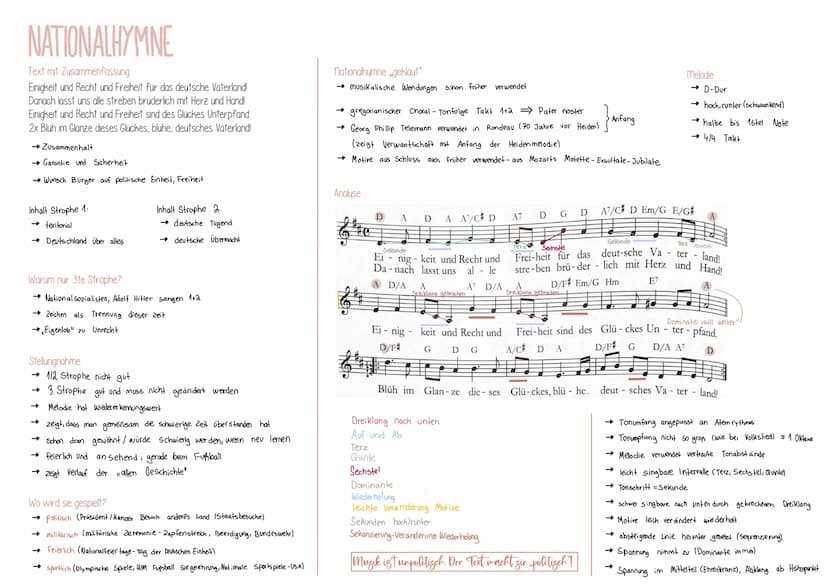 NATIONALHYMNE
Text mit Zusammenfassung
Einigkeit und Recht und Freiheit für das deutsche Vaterland!
Danach lasst uns alle streben brüderlich mit Herz und Hand!
Einigkeit und Recht und Freiheit sind des Glückes Unterpfand.
2x Blüh im Glanze dieses Glückes, blühe, deutsches Vaterland!
→ Zusammenhalt
→ Garantie und Sicherheit
→ Wunsch Bürger auf politische Einheit, Freiheit
Inhalt Strophe 1:
→ teritorial
→ Deutschland über alles
Inhalt Strophe 2:
→ deutsche Tugend
→ deutsche Übermacht
Warum nur 3te Strophe?
→ Nationalsozialisten, Adolf Hitler sangen 1+2
→ zeichen als Trennung dieser zeit
→ „Eigenlob" zu Unrecht
Stellungnahme
→ 1/2 Strophe nicht gut
→ 3. Strophe gut und muss nicht geändert werden
→ Melodie hat Wiedererkennungswert
→ zeigt, dass man gemeinsam die schwierige Zeit überstanden hat
→ schon dran gewöhnt / würde schwierig werden, wenn neu lernen
→ feierlich und ansehend, gerade beim Fußball
→ zeigt Verlauf der "alten Geschichte"
Wo wird sie gespielt?
→ politisch (Präsident/Kanzler Besuch anderes Land (Staatsbesuche)
→ militärisch (militärische Zeremonie - Zapfenstreich, Beerdigung, Bundeswehr)
→ feierlich (Nationalfeiertage - Tag der Deutschen Einheit)
→ sportlich (Olympische Spiele, WM Fußball Siegerehrung, Nationale Sportspiele - USA)
Nationalhymne „geklaut"
→ musikalische Wendungen schon früher verwendet
→ gregorianischer Choral - Tonfolge Takt 1+2 ⇒ Pater noster
→ Georg Philip Telemann verwendet in Rondeau (70 Jahre vor Heiden)
(zeigt Verwantschaft mit Anfang der Heidenmelodie)
Anfang
→ Motive aus Schluss auch früher verwendet - aus Mozarts Motette - Exsultate - Jubilate
Melodie
→ D-Dur
→ hoch, runter (schwankend)
→ halbe bis 16tel Note
→ 4/4 Takt
Analyse
D A D A A7/C# D A7 D G D A7/C# D Em/G E/G# A
Sekunde Terz Sechstel Sekunde Terz Quinte
Ei - nig - keit und Recht und Frei-heit für das deut-sche Va - ter - land!
Da - nach lasst uns al - le stre-ben brü-der - lich mit Herz und Hand!
A D/A A A7 D/A A D/F# Em/G Hm E7 A
Dreiklang gebrochen Dreiklang gebrochen
Dominate „will weiter"
Ei - nig - keit und Recht und Frei-heit sind des Glü - ckes Un - ter - pfand.
D/F# G D G A/C# D A D/F# G D/A A7 D
Blüh im Glan - ze die - ses Glü - ckes, blü - he. deut - sches Va - ter - land!
Dreiklang nach unten
Auf und Ab
Terz
Quinte
Sechstel
Dominante
Wiederholung
leichte Veränderung Motive
Sekunden hoch/runter
Sekanzierung - Veränderung Wiederholung
Musik ist unpolitisch. Der Text macht sie „politisch"!
→ Tonumfang angepasst an Atemrythmus
→ Tonumpfang nicht so groß (wie bei Volkslied) ≈ 1 Oktave
→ Melodie verwendet vertraute Tonabstände
→ leicht singbare Intervalle (Terz, Sechstel, Quinte)
→ Tonschritt = Sekunde
→ schwer singbare nach unten durch gebrochenen Dreiklang
→ Motive leich verändert wiederholt
→ absteigende Linie herunter gesetzt (Seqenzierung)
→ Spannung nimmt zu (Dominante immer)
→ Spannung im Mittelteil (Ehrenkranz), Abklang ab Höhepunkt